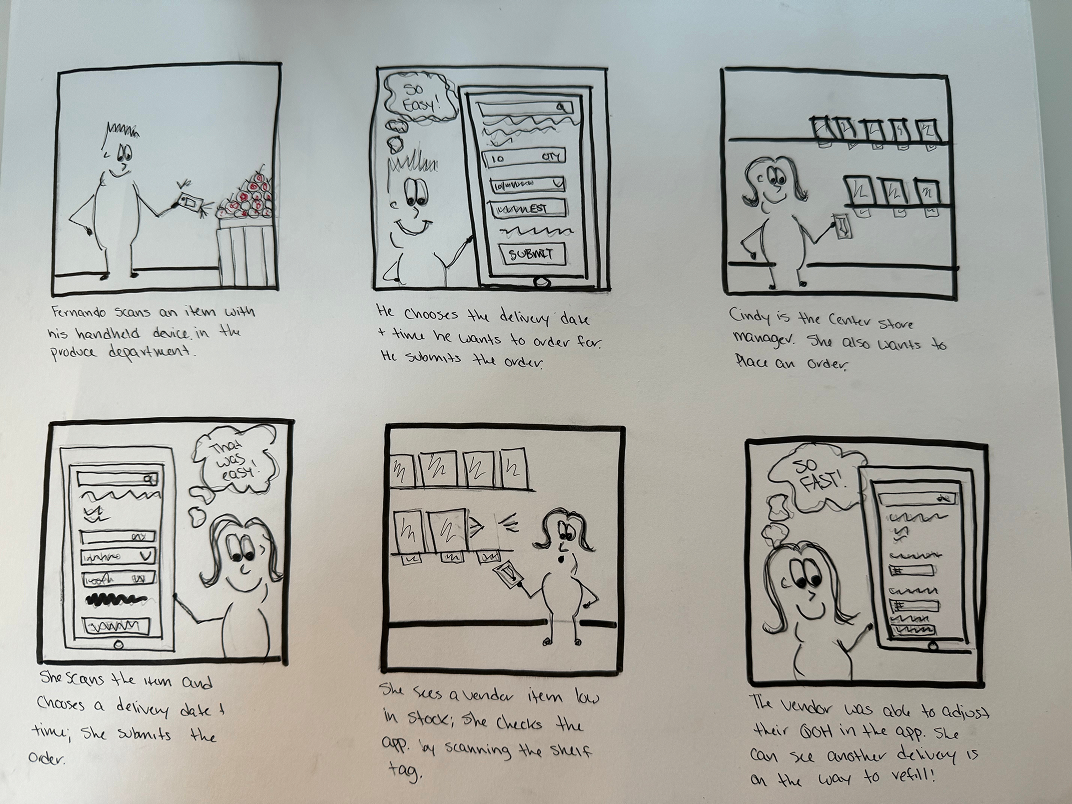 Fernando scans an item with
his handheld device in the
produce department.
So
Easy!
10 QTY
EST
SUBMIT
He chooses the delivery date
+ time he wants to order for.
He submits the order.
Cindy is the Center Store
manager. She also wants to
Place an order.
That
was
easy!
She scans the item and
Chooses a delivery date +
time; She submits the
order.
She sees a vender item low
in stock; She checks the
app. by scanning the shelf
tag.
SO
FAST!
#
#
The vendor was able to adjust
their QOH in the app. She
can see another delivery is
on the way to refill!